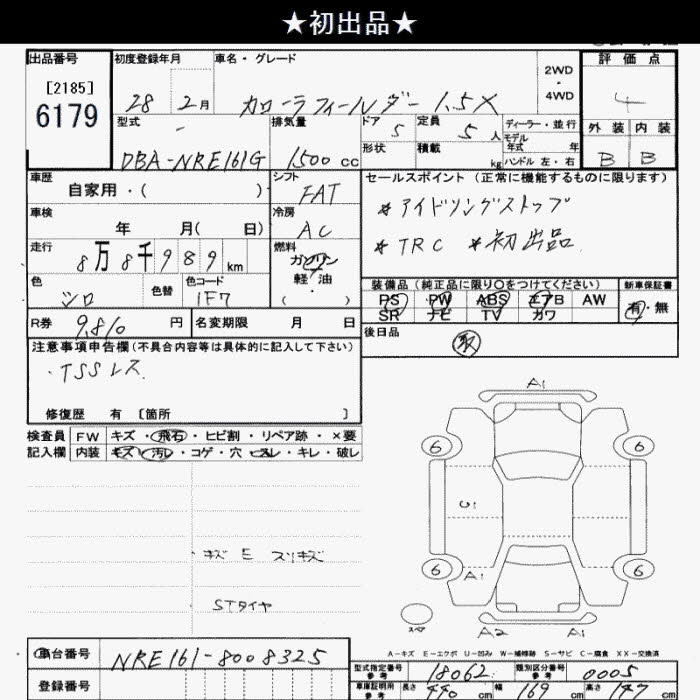 ★初出品★
出品番号 初度登録年月 車名・グレード 2WD・4WD 評価点
[2185] 6179
28 2月 カローラフィールダー 1.5X 4
型式 排気量 ドア 5 定員 5人 ディーラー・並行 外装 内装
モデル年式 年
DBA-NRE161G 1500cc 形状 積載 kg ハンドル 左・右 B B
車歴 シフト セールスポイント (正常に機能するものに限ります)
自家用・( ) FAT
* アイドリングストップ
車検 冷房
年 月( 日) AC * TRC * 初出品
走行 燃料
8万8千989km ガソリン
装備品 (純正品に限り○をつけてください) 新車保証書
色 色替 色コード 軽・油
シロ 1F7 ( ・ )
PS PW ABS エアB AW 有・無
SR ナビ TV カワ
R券 9,810円 名変期限 月 日 後日品
取
注意事項申告欄 (不具合内容等は具体的に記入して下さい)
・TSSレス
修復歴 有 [箇所 ]
検査員 FW キズ・飛石・ヒビ割・リペア跡・×要
記入欄 内装 キズ・汚レ・コゲ・穴・スレ・キレ・破レ
A1
6 6
U1
キズ E スリキズ
6 A1 6
STタイヤ
スペア A2 A1
A-キズ E-エクボ U-凹み W-補修跡 S-サビ C-腐食 XX-交換済
車台番号 NRE161-8008325
型式指定番号 参考 18062 類別区分番号 参考 0005
登録番号
車庫証明用 参考 長さ 440cm 幅 169cm 高さ 147cm